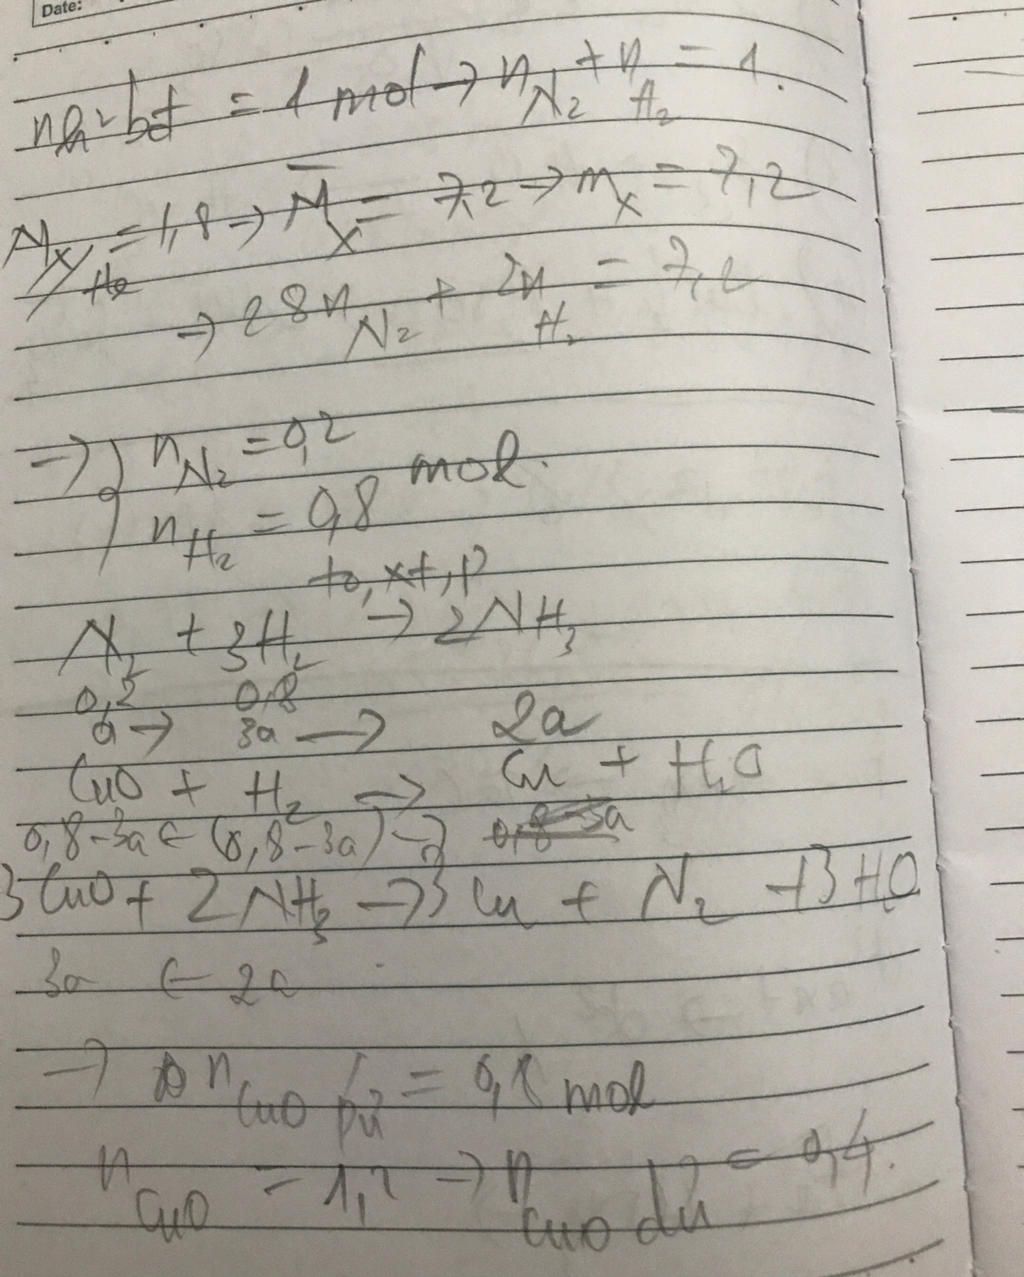 Date:
n hh bđ = 1 mol → n N₂ + n H₂ = 1.
M X/H₂ = 1,8 → M̅ X = 7,2 → m X = 7,2
→ 28n N₂ + 2n H₂ = 7,2
⇒ { n N₂ = 0,2
n H₂ = 0,8 mol.
to, xt, p
N₂ + 3H₂ → 2NH₃
0,2 0,8
a → 3a → 2a
CuO + H₂ → Cu + H₂O
0,8-3a ← (0,8-3a) →
3CuO + 2NH₃ → 3Cu + N₂ + 3H₂O
3a ← 2a
⇒ n CuO pứ = 0,8 mol
n CuO = 1,2 → n CuO dư = 0,4.